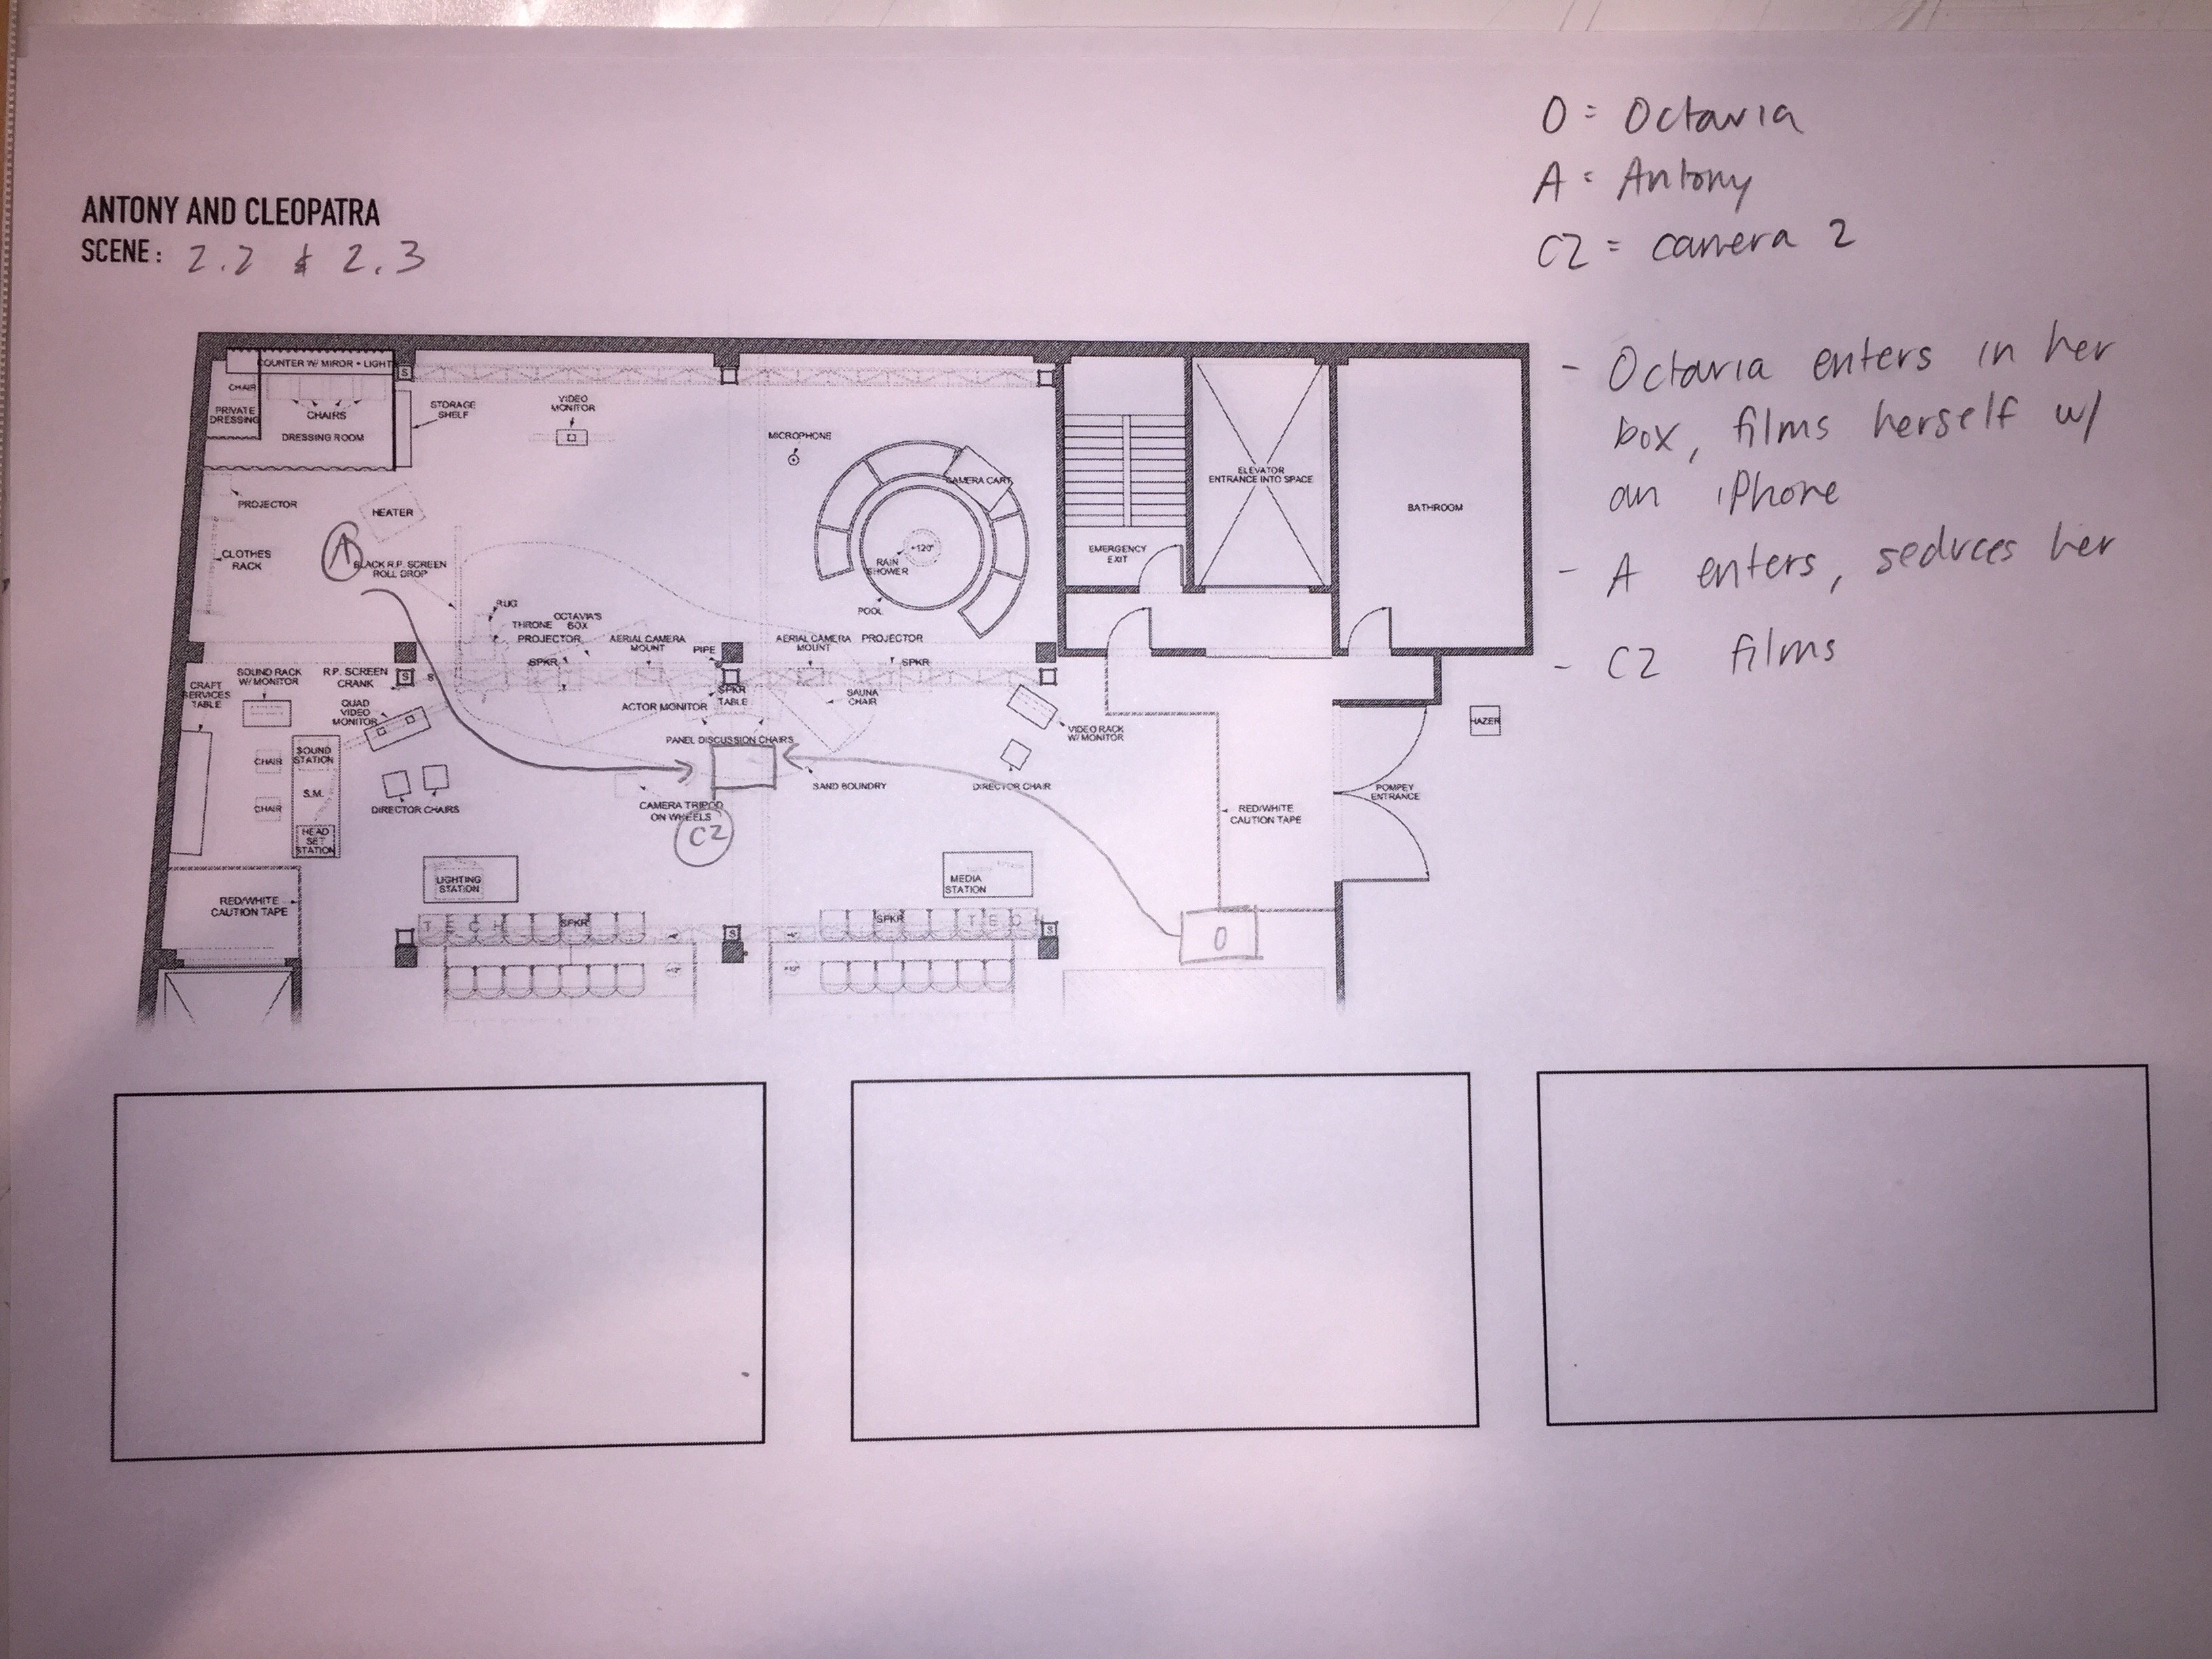 O = Octavia
A = Antony
C2 = camera 2
ANTONY AND CLEOPATRA
SCENE: 2.2 & 2.3
- Octavia enters in her
box, films herself w/
an iPhone
- A enters, seduces her
- C2 films
COUNTER W/ MIROR + LIGHT
CHAIR
PRIVATE
DRESSING
CHAIRS
DRESSING ROOM
S
STORAGE
SHELF
VIDEO
MONITOR
MICROPHONE
CAMERA CART
ELEVATOR
ENTRANCE INTO SPACE
BATHROOM
PROJECTOR
HEATER
CLOTHES
RACK
A
BLACK R.P. SCREEN
ROLL DROP
+120"
RAIN
SHOWER
POOL
EMERGENCY
EXIT
RUG
THRONE
OCTAVIA'S
BOX
PROJECTOR
AERIAL CAMERA
MOUNT
PIPE
AERIAL CAMERA
MOUNT
PROJECTOR
SPKR
SPKR
CRAFT
SERVICES
TABLE
SOUND RACK
W/ MONITOR
R.P. SCREEN
CRANK
S
S
QUAD
VIDEO
MONITOR
ACTOR MONITOR
SPKR
TABLE
SAUNA
CHAIR
VIDEO RACK
W/ MONITOR
HAZER
PANEL DISCUSSION CHAIRS
CHAIR
SOUND
STATION
S.M.
CHAIR
HEAD
SET
STATION
DIRECTOR CHAIRS
CAMERA TRIPOD
ON WHEELS
C2
SAND BOUNDRY
DIRECTOR CHAIR
RED/WHITE
CAUTION TAPE
POMPEY
ENTRANCE
LIGHTING
STATION
MEDIA
STATION
RED/WHITE
CAUTION TAPE
TECH
SPKR
S
SPKR
TECH
S
O